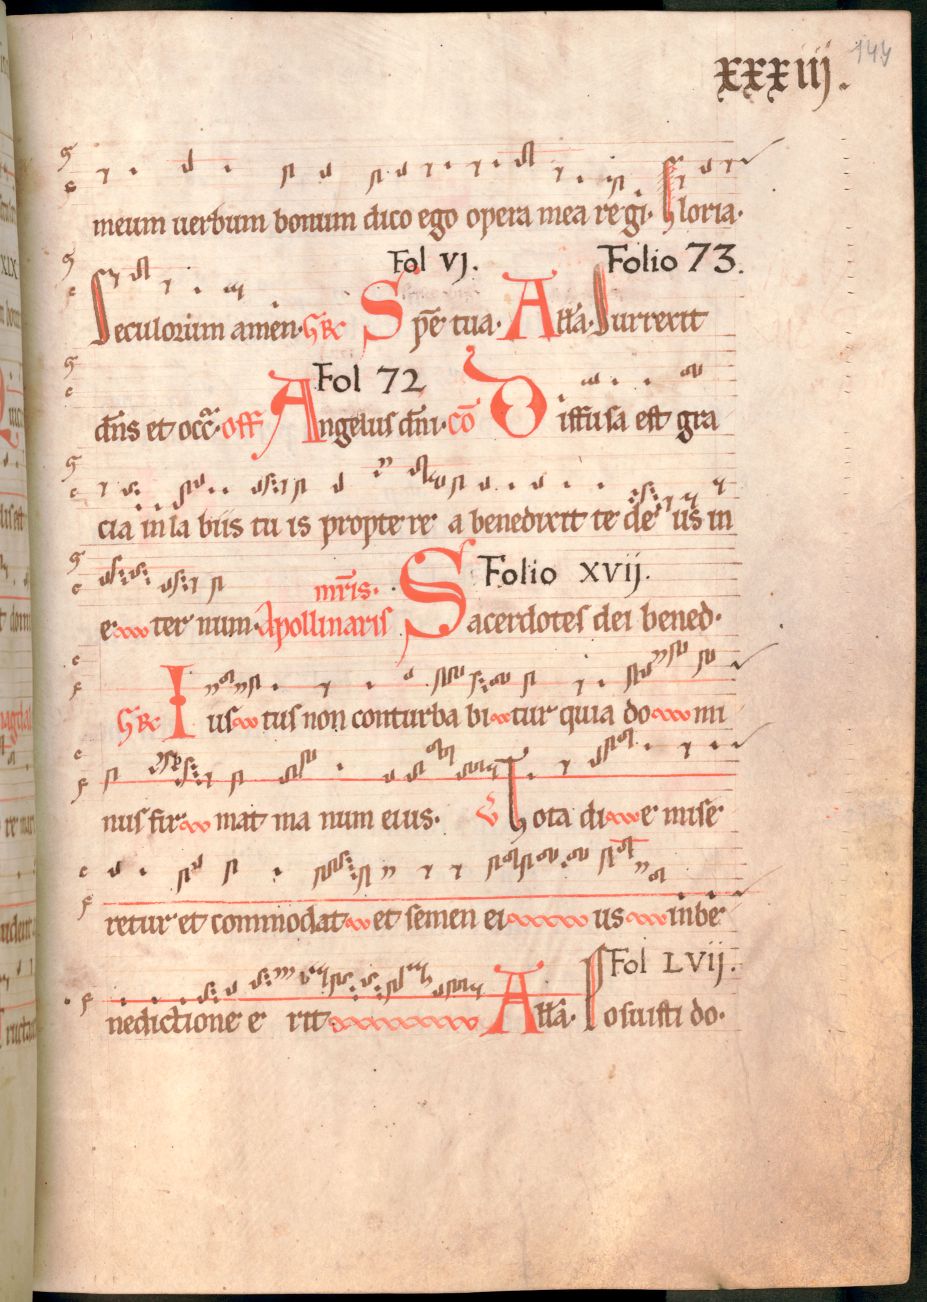 xxxiiij.
144
meum uerbum bonum dico ego opera mea regi. Gloria.
Fol VI. Folio 73.
Seculorum amen. Gr̄ Spē tua. All'a. Surrexit
Fol 72
dn̄s et occ̄. off Angelus dn̄i. cō Diffusa est gra
cia in la biis tu is propte re a benedixit te de us in
mr̄is. Folio XVIJ.
e ter num. Apollinaris Sacerdotes dei bened.
Gr̄ Ius tus non conturba bi tur quia do mi
nus fir mat ma num eius. V Tota di e mise
retur et commodat et semen ei us in be
Fol LVIJ.
nedictione e rit All'a. Posuisti do.